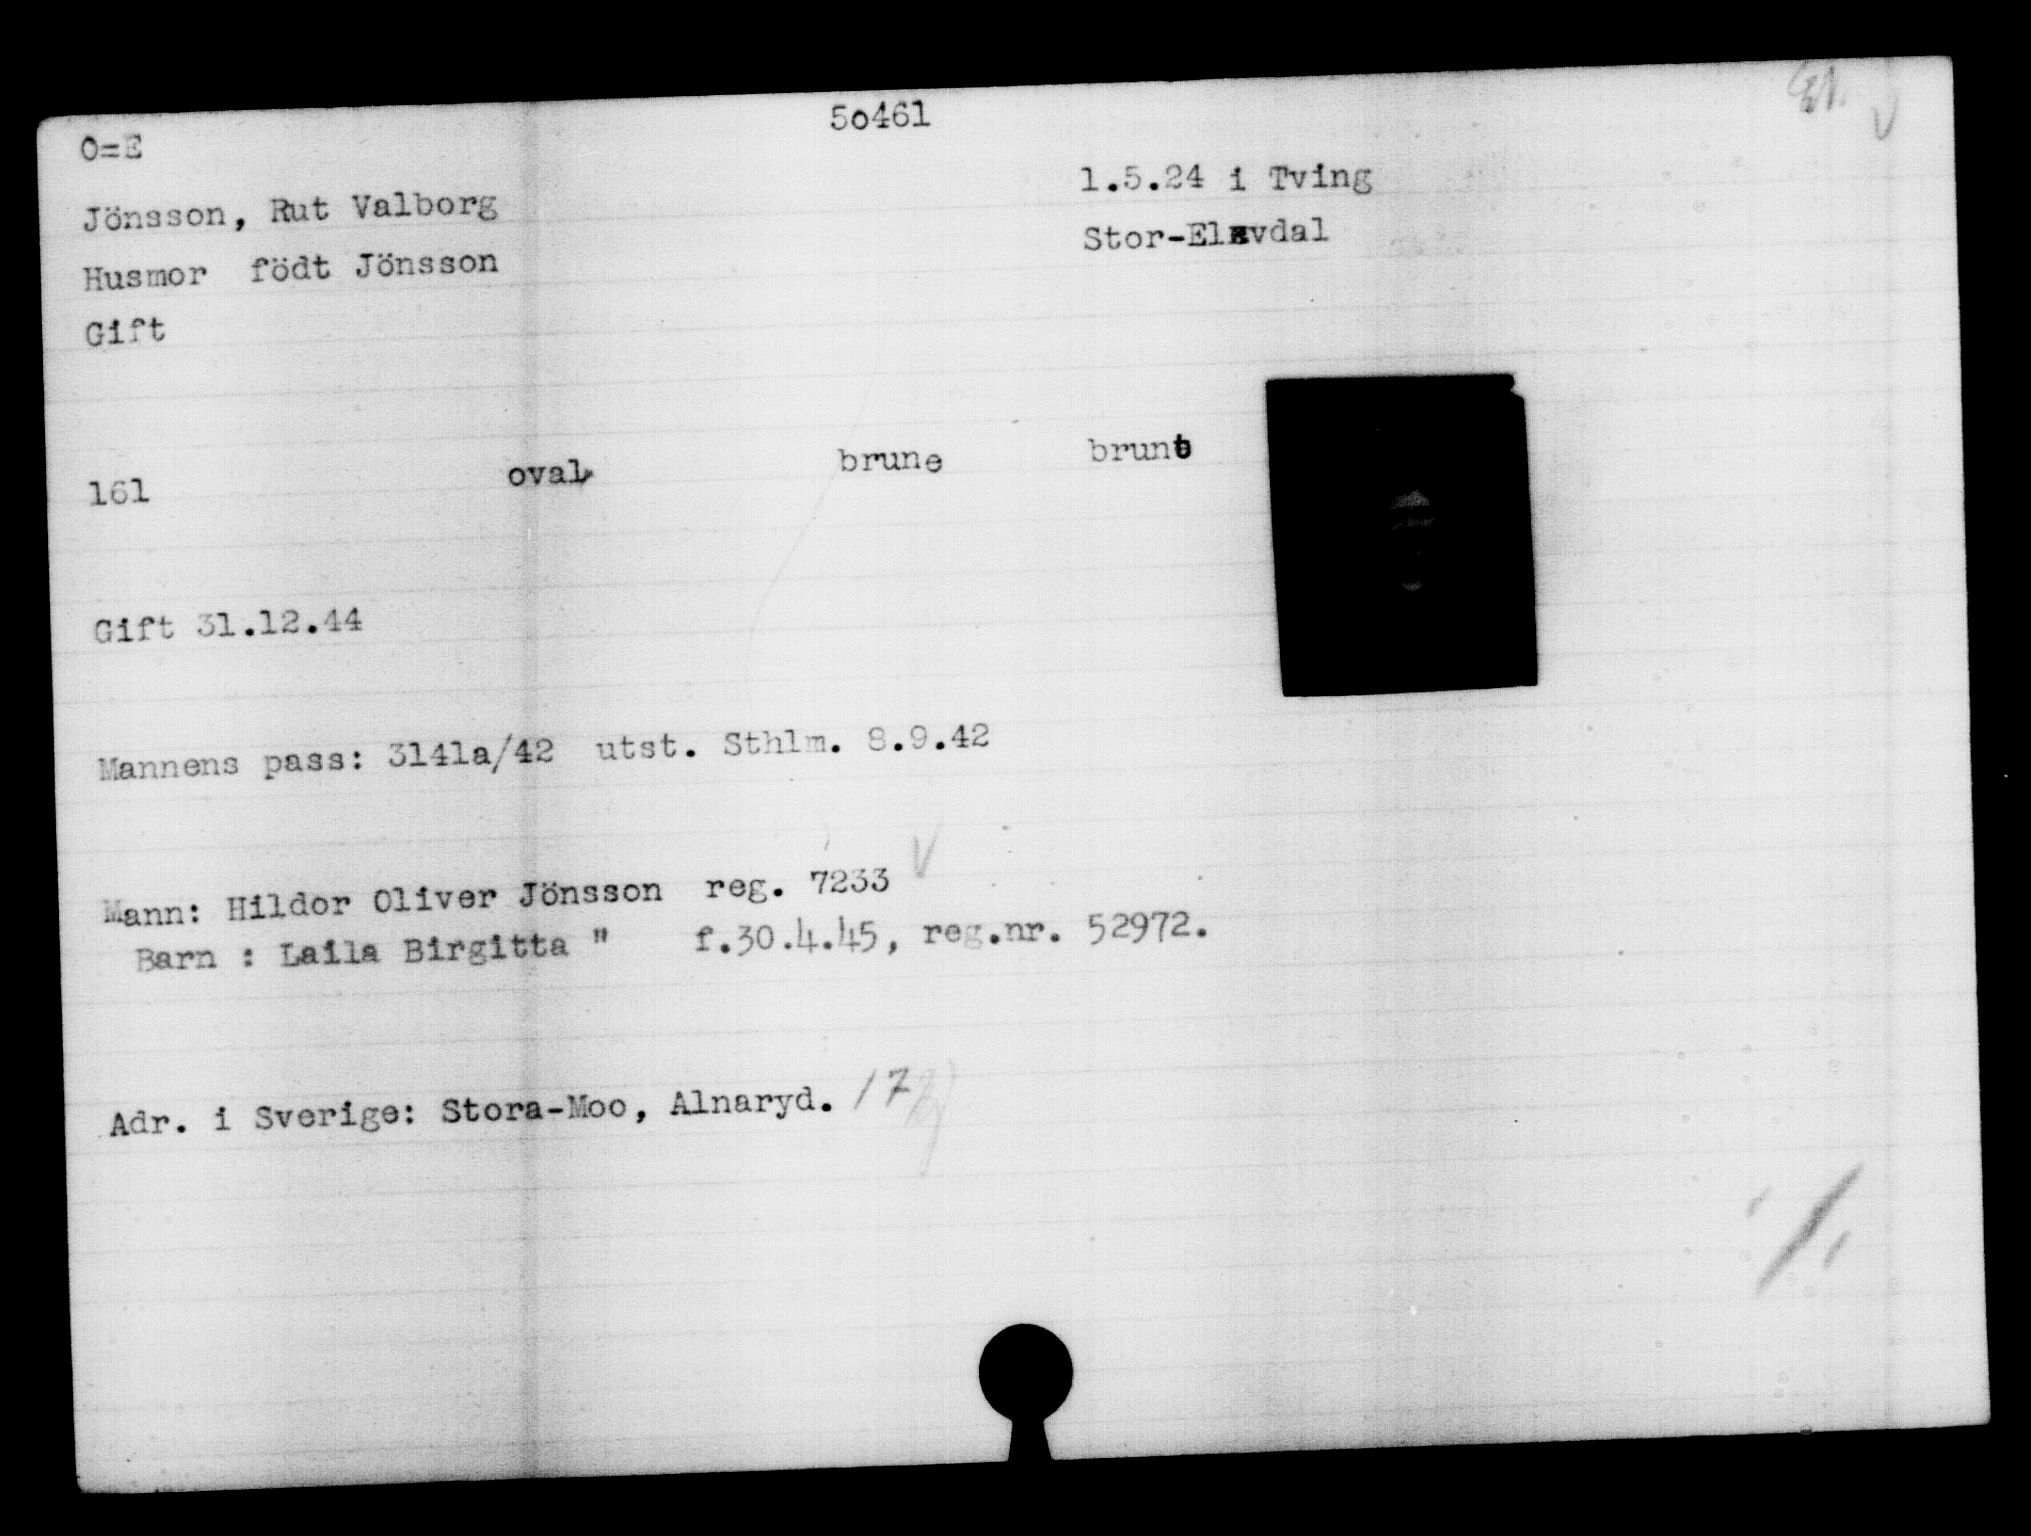 50461
O=E
1.5.24 i Tving
Jönsson, Rut Valborg
Stor-Elvdal
Husmor födt Jönsson
Gift
161 oval brune brunt
Gift 31.12.44
Mannens pass: 3141a/42 utst. Sthlm. 8.9.42
Mann: Hildor Oliver Jönsson reg. 7233 V
Barn : Laila Birgitta " f.30.4.45, reg.nr. 52972.
Adr. i Sverige: Stora-Moo, Alnaryd.